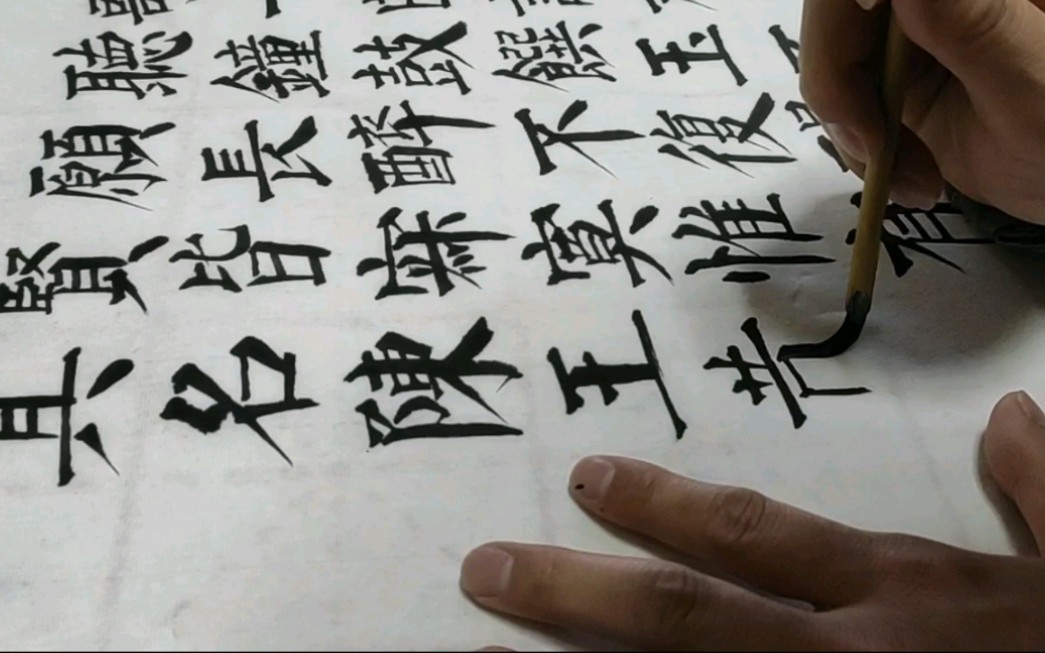 聽鐘鼓饌玉
願長醉不復
賢皆寂寞惟有
其名陳王